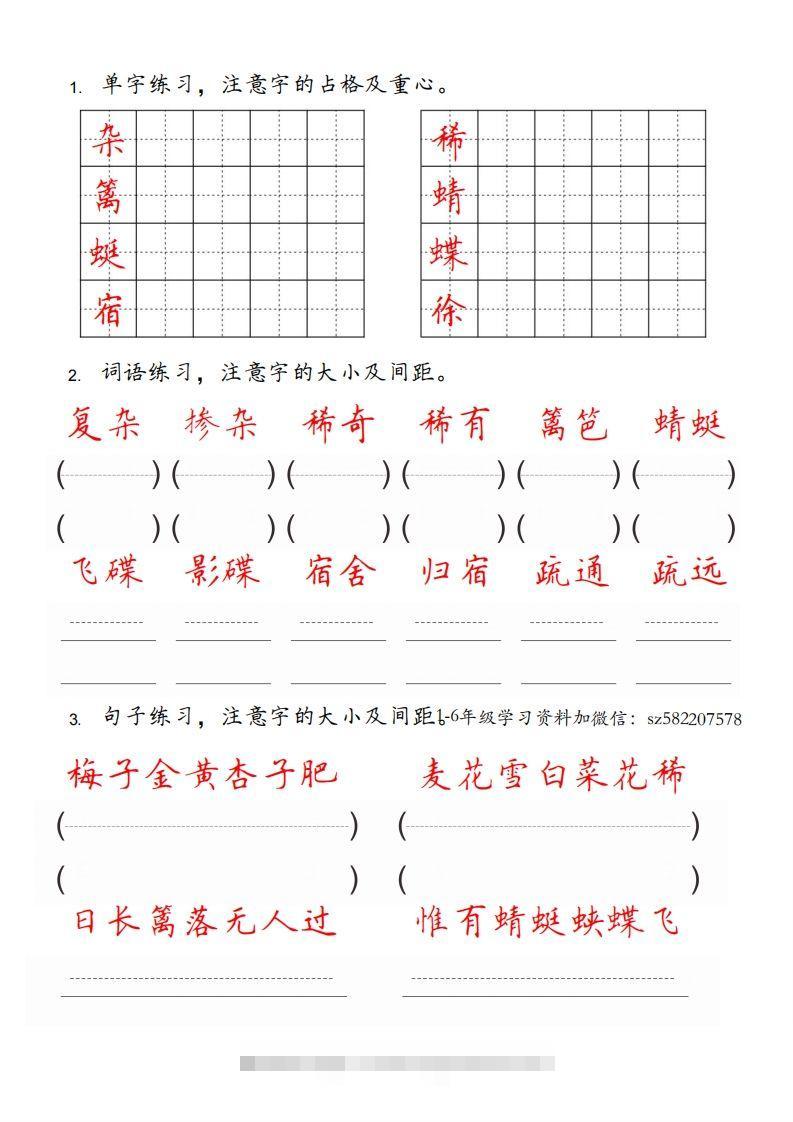 1. 单字练习，注意字的占格及重心。
杂 稀
篱 蜻
蜓 蝶
宿 徐
2. 词语练习，注意字的大小及间距。
复杂 掺杂 稀奇 稀有 篱笆 蜻蜓
( ) ( ) ( ) ( ) ( ) ( )
( ) ( ) ( ) ( ) ( ) ( )
飞碟 影碟 宿舍 归宿 疏通 疏远
3. 句子练习，注意字的大小及间距。1-6年级学习资料加微信：sz582207578
梅子金黄杏子肥 麦花雪白菜花稀
( ) ( )
( ) ( )
日长篱落无人过 惟有蜻蜓蛱蝶飞